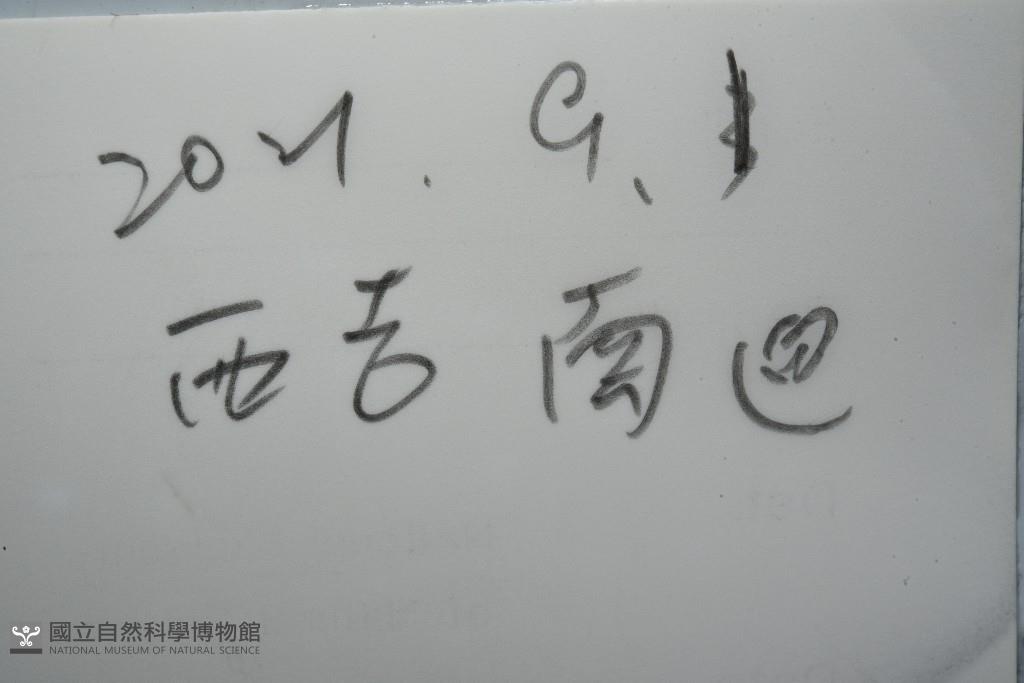 2021. 9、1
西吉南迴
國立自然科學博物館
NATIONAL MUSEUM OF NATURAL SCIENCE